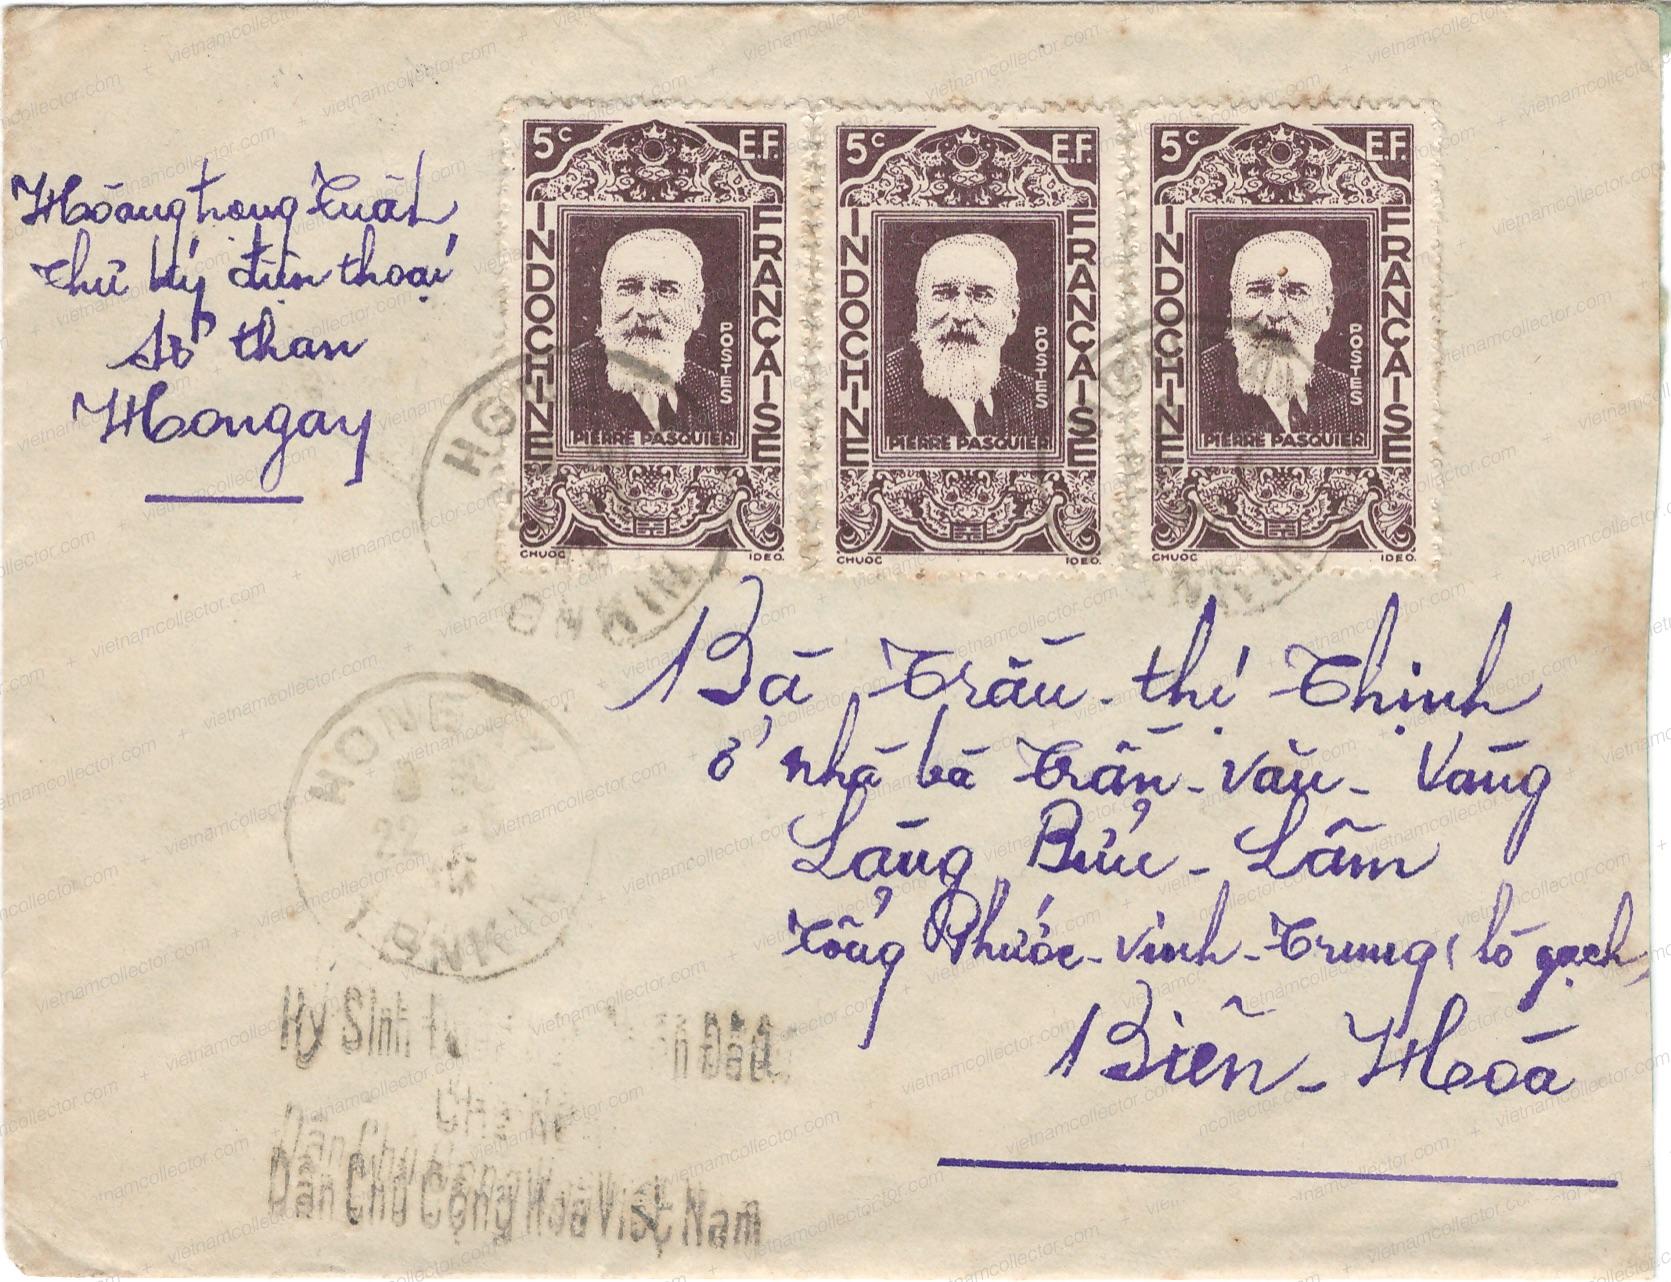 Hoàng trọng Xuân
thư ký điện thoại
Sở than
Hongay
5c E.F.
INDOCHINE FRANÇAISE
POSTES
PIERRE PASQUIER
CHUOC IDEO.
5c E.F.
INDOCHINE FRANÇAISE
POSTES
PIERRE PASQUIER
CHUOC IDEO.
5c E.F.
INDOCHINE FRANÇAISE
POSTES
PIERRE PASQUIER
CHUOC IDEO.
Bà Trần-thị Thịnh
ở nhà bà Trần-văn-Vàng
Làng Bửu-Lâm
Tổng Phước-vinh-Trung (lò gạch)
Biên-Hoà
22
TONKIN
Hy Sinh
Dân Chủ Cộng Hoà Việt Nam
vietnamcollector.com